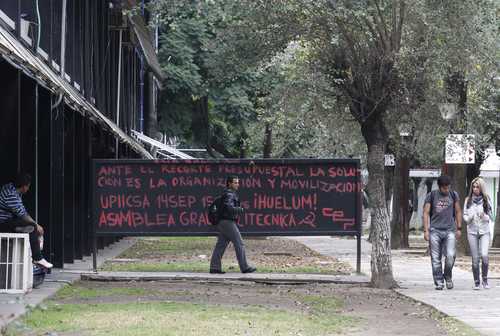 ANTE EL RECORTE PRESUPUESTAL LA SOLU-
CIÓN ES LA ORGANIZACIÓN Y MOVILIZACIÓN
UPIICSA 14 SEP 15 ¡HUELUM!
ASAMBLEA GRAL POLITECNICA